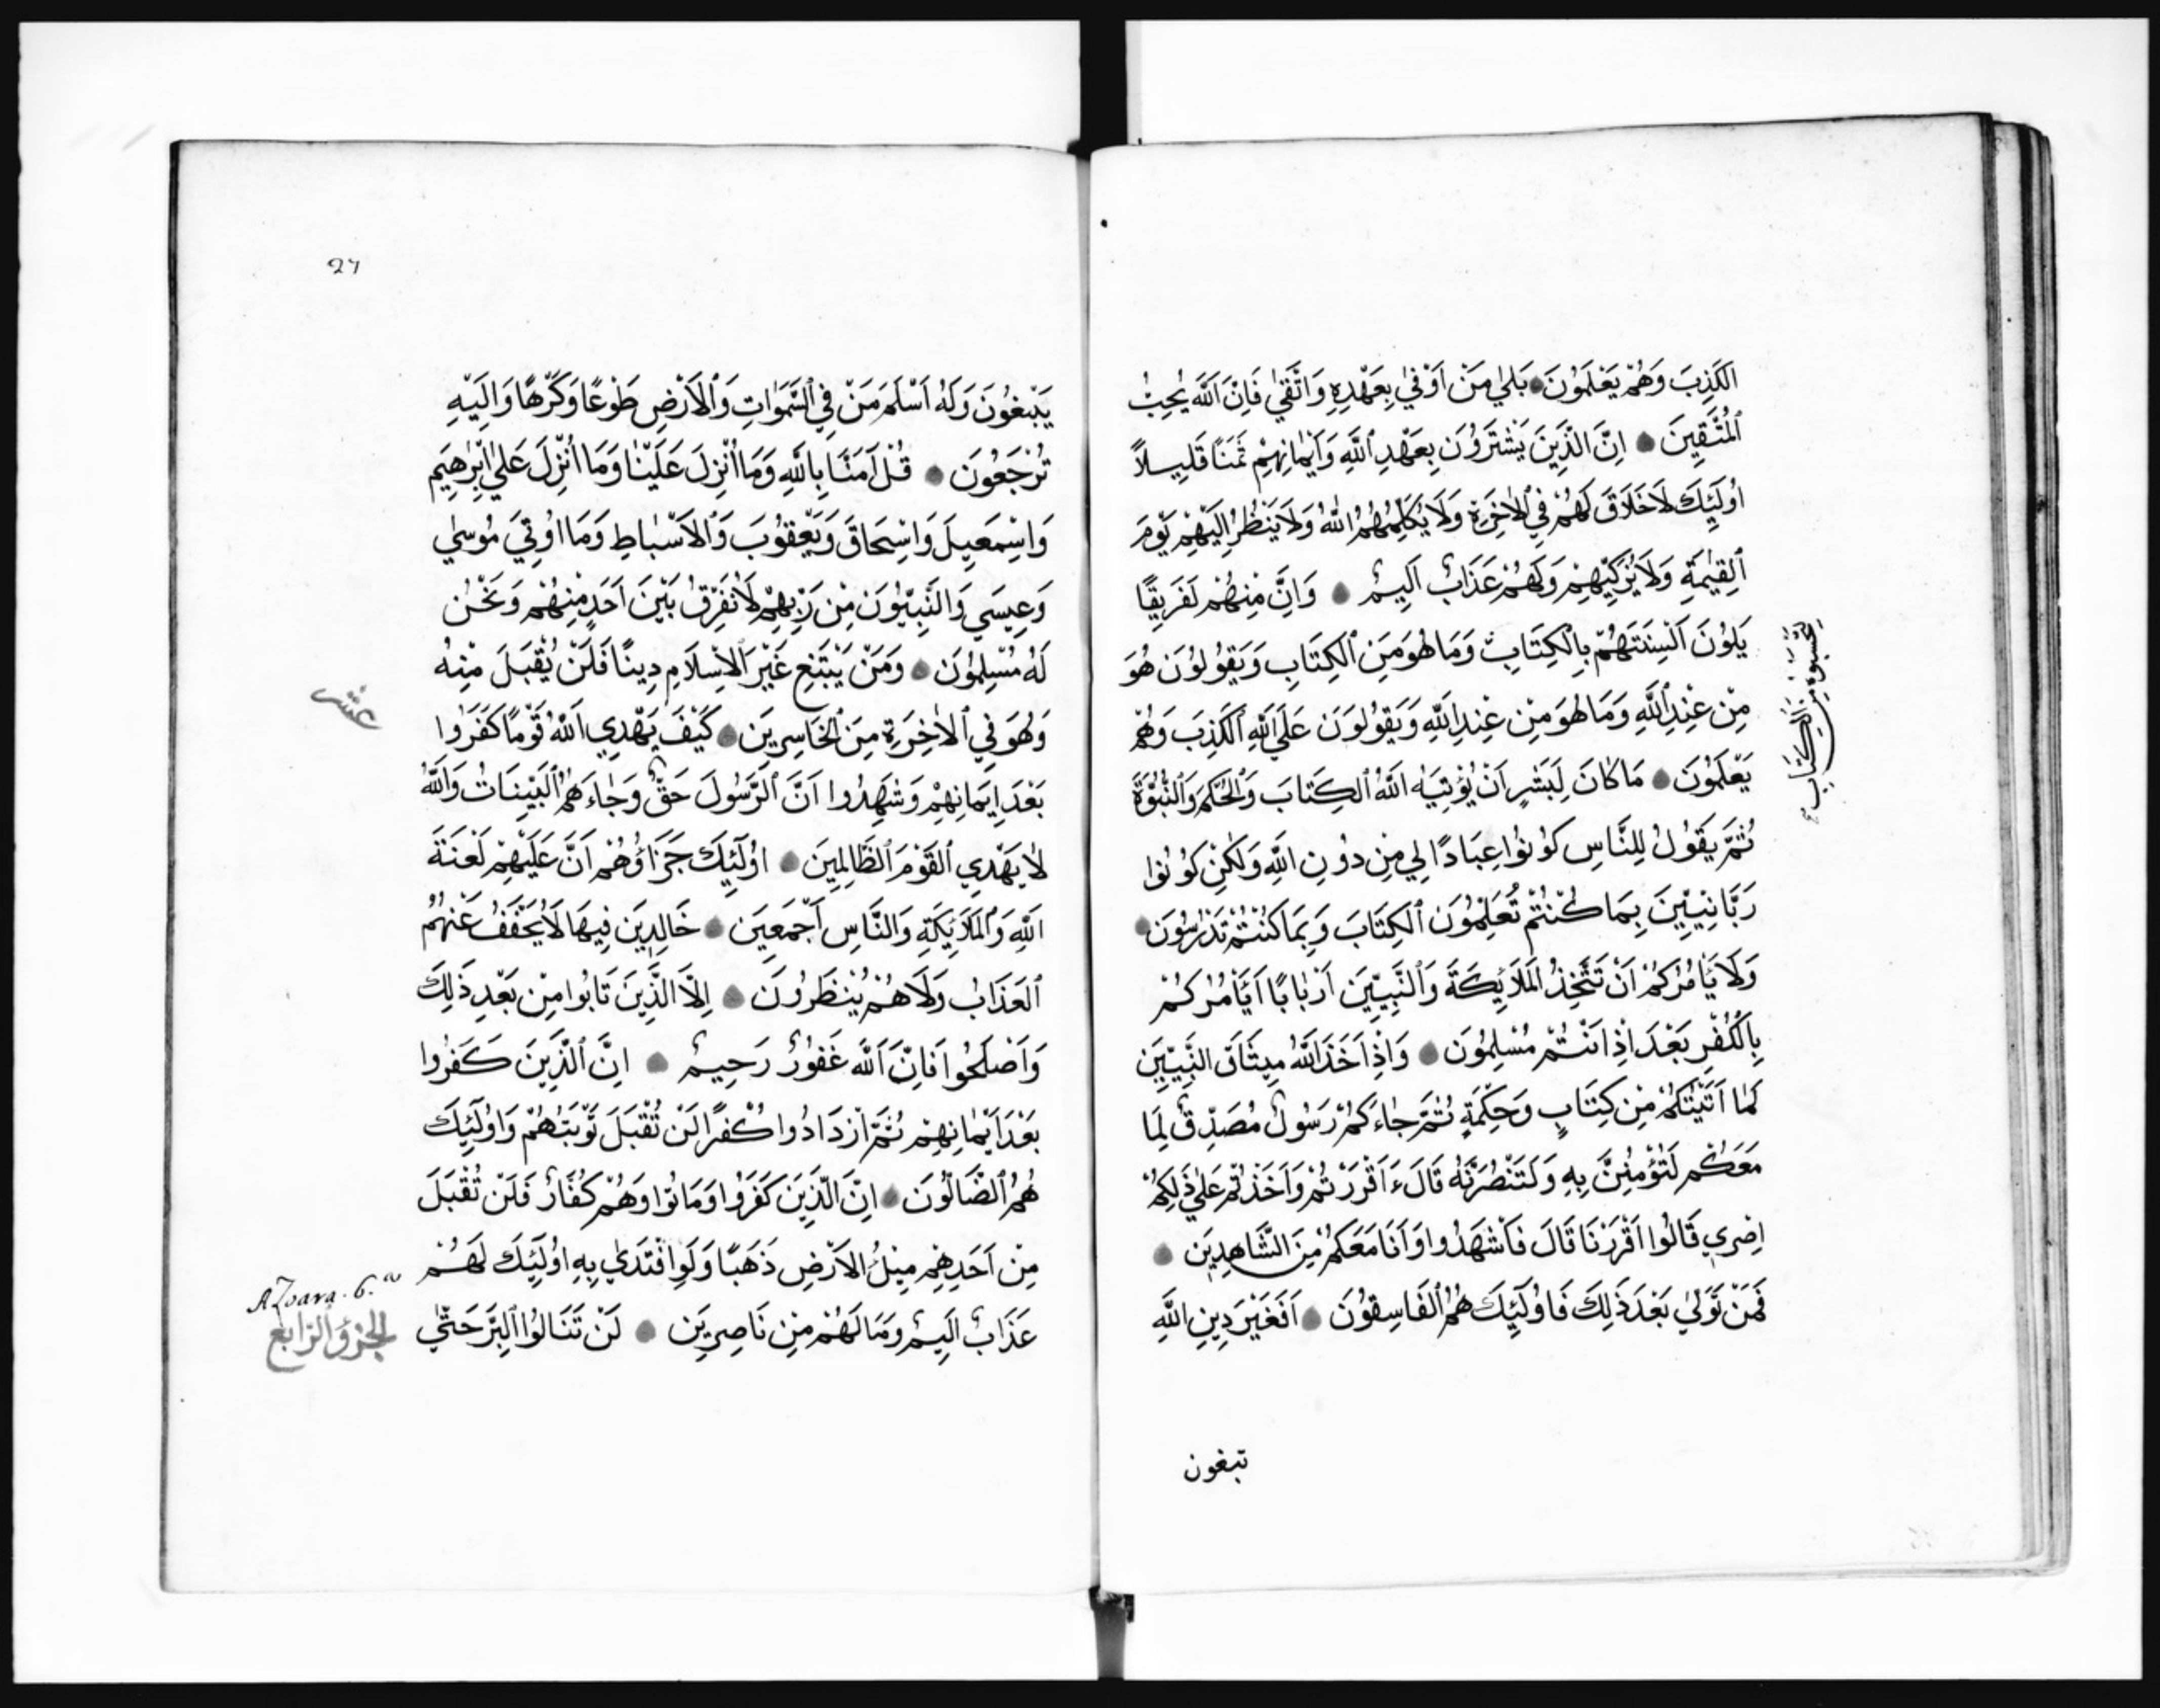 الكَذِبَ وَهُمْ يَعْلَمُونَ بَلٰي مَنْ اَوْفٰي بِعَهْدِهِ وَاتَّقٰي فَاِنَّ اَللّٰهَ يُحِبُّ
اَلْمُتَّقِينَ اِنَّ الَّذِينَ يَشْتَرُونَ بِعَهْدِ اَللّٰهِ وَاَيْمَانِهِمْ ثَمَنًا قَلِيلاً
اُولَئِكَ لَاخَلَاقَ لَهُمْ فِي اْلاٰخِرَةِ وَلَا يُكَلِّمُهُمُ اللّٰهُ وَلَا يَنْظُرُ اِلَيْهِمْ يَوْمَ
اَلْقِيٰمَةِ وَلَا يُزَكِّيْهِمْ وَلَهُمْ عَذَابٌ اَلِيمٌ وَاِنَّ مِنْهُمْ لَفَرِيقًا
يَلوُنَ اَلْسِنَتَهُمْ بِالْكِتَابِ وَمَا هُوَ مِنَ اَلْكِتَابِ وَيَقُولُونَ هُوَ
لِتَحْسَبُوهُ مِنَ الْكِتَابِ
مِنْ عِنْدِ اَللّٰهِ وَمَا هُوَ مِنْ عِنْدِ اللّٰهِ وَيَقُولُونَ عَلَي اَللّٰهِ اَلْكَذِبَ وَهُمْ
يَعْلَمُونَ مَا كَانَ لِبَشَرٍ اَنْ يُؤْتِيَهُ اَللّٰهُ الْكِتَابَ وَالْحُكْمَ وَالنُّبُوَّةَ
ثُمَّ يَقُولُ لِلنَّاسِ كُونُوا عِبَادًا لِي مِنْ دُونِ اللّٰهِ وَلٰكِنْ كُونُوا
رَبَّانِيِّينَ بِمَا كُنْتُمْ تُعَلِّمُونَ اَلْكِتَابَ وَبِمَا كُنْتُمْ تَدْرُسُونَ
وَلَا يَاْمُرَكُمْ اَنْ تَتَّخِذُ الْمَلَائِكَةَ وَاَلنَّبِيِّينَ اَرْبَابًا اَيَاْمُرُكُمْ
بِالْكُفْرِ بَعْدَ اِذْ اَنْتُمْ مُسْلِمُونَ وَاِذْ اَخَذَ اَللّٰهُ مِيثَاقَ النَّبِيِّينَ
لَمَا اَتَيْتُكُمْ مِنْ كِتَابٍ وَحِكْمَةٍ ثُمَّ جَاءَكُمْ رَسُولٌ مُصَدِّقٌ لِمَا
مَعَكُمْ لَتُؤْمِنُنَّ بِهِ وَلَتَنْصُرُنَّهُ قَالَ ءَاَقْرَرْتُمْ وَاَخَذْتُمْ عَلٰي ذٰلِكُمْ
اِصْرِي قَالُوا اَقْرَرْنَا قَالَ فَاَشْهَدُوا وَاَنَا مَعَكُمْ مِنَ الشَّاهِدِينَ
فَمَنْ تَوَلّٰي بَعْدَ ذٰلِكَ فَاُولَئِكَ هُمُ الْفَاسِقُونَ اَفَغَيْرَ دِينِ اللّٰهِ
تبغون
27
يَبْغُونَ وَلَهُ اَسْلَمَ مَنْ فِي السَّمٰوَاتِ وَالْاَرْضِ طَوْعًا وَكَرْهًا وَاِلَيْهِ
تُرْجَعُونَ قُلْ اٰمَنَّا بِاللّٰهِ وَمَا اُنْزِلَ عَلَيْنَا وَمَا اُنْزِلَ عَلٰي اِبْرٰهِيمَ
وَاِسْمَعِيلَ وَاِسْحَاقَ وَيَعْقُوبَ وَالْاَسْبَاطِ وَمَا اُوتِيَ مُوسٰي
وَعِيسَي وَالنَّبِيُّونَ مِنْ رَبِّهِمْ لَانُفَرِّقُ بَيْنَ اَحَدٍ مِنْهُمْ وَنَحْنُ
لَهُ مُسْلِمُونَ وَمَنْ يَبْتَغِ غَيْرَ اَلاِسْلَامِ دِينًا فَلَنْ يُقْبَلَ مِنْهُ
عشر
وَهُوَ فِي اَلاٰخِرَةِ مِنَ الْخَاسِرِينَ كَيْفَ يَهْدِي اَللّٰهُ قَوْمًا كَفَرُوا
بَعْدَ اِيمَانِهِمْ وَشَهِدُوا اَنَّ اَلرَّسُولَ حَقٌّ وَجَاءَهُمُ الْبَيِّنَاتُ وَاللّٰهُ
لَا يَهْدِي الْقَوْمَ الظَّالِمِينَ اُولَئِكَ جَزَاؤُهُمْ اَنَّ عَلَيْهِمْ لَعْنَةَ
اَللّٰهِ وَالْمَلَائِكَةِ وَالنَّاسِ اَجْمَعِينَ خَالِدِينَ فِيهَا لَا يُخَفَّفُ عَنْهُمُ
اَلْعَذَابُ وَلَا هُمْ يُنْظَرُونَ اِلَّا الَّذِينَ تَابُوا مِنْ بَعْدِ ذٰلِكَ
وَاَصْلَحُوا فَاِنَّ اَللّٰهَ غَفُورٌ رَحِيمٌ اِنَّ اَلَّذِينَ كَفَرُوا
بَعْدَ اِيمَانِهِمْ ثُمَّ اَزْدَادُوا كُفْرًا لَنْ تُقْبَلَ تَوْبَتُهُمْ وَاُولَئِكَ
هُمُ الضَّالُّونَ اِنَّ الَّذِينَ كَفَرُوا وَمَاتُوا وَهُمْ كُفَّارٌ فَلَنْ تُقْبَلَ
مِنْ اَحَدِهِمْ مِلْءُ الْاَرْضِ ذَهَبًا وَلَوِ افْتَدٰي بِهِ اُولَئِكَ لَهُمْ
عَذَابٌ اَلِيمٌ وَمَا لَهُمْ مِنْ نَاصِرِينَ لَنْ تَنَالُوا الْبِرَّ حَتّٰي
AZoara. 6.a
الجزؤ الرابع